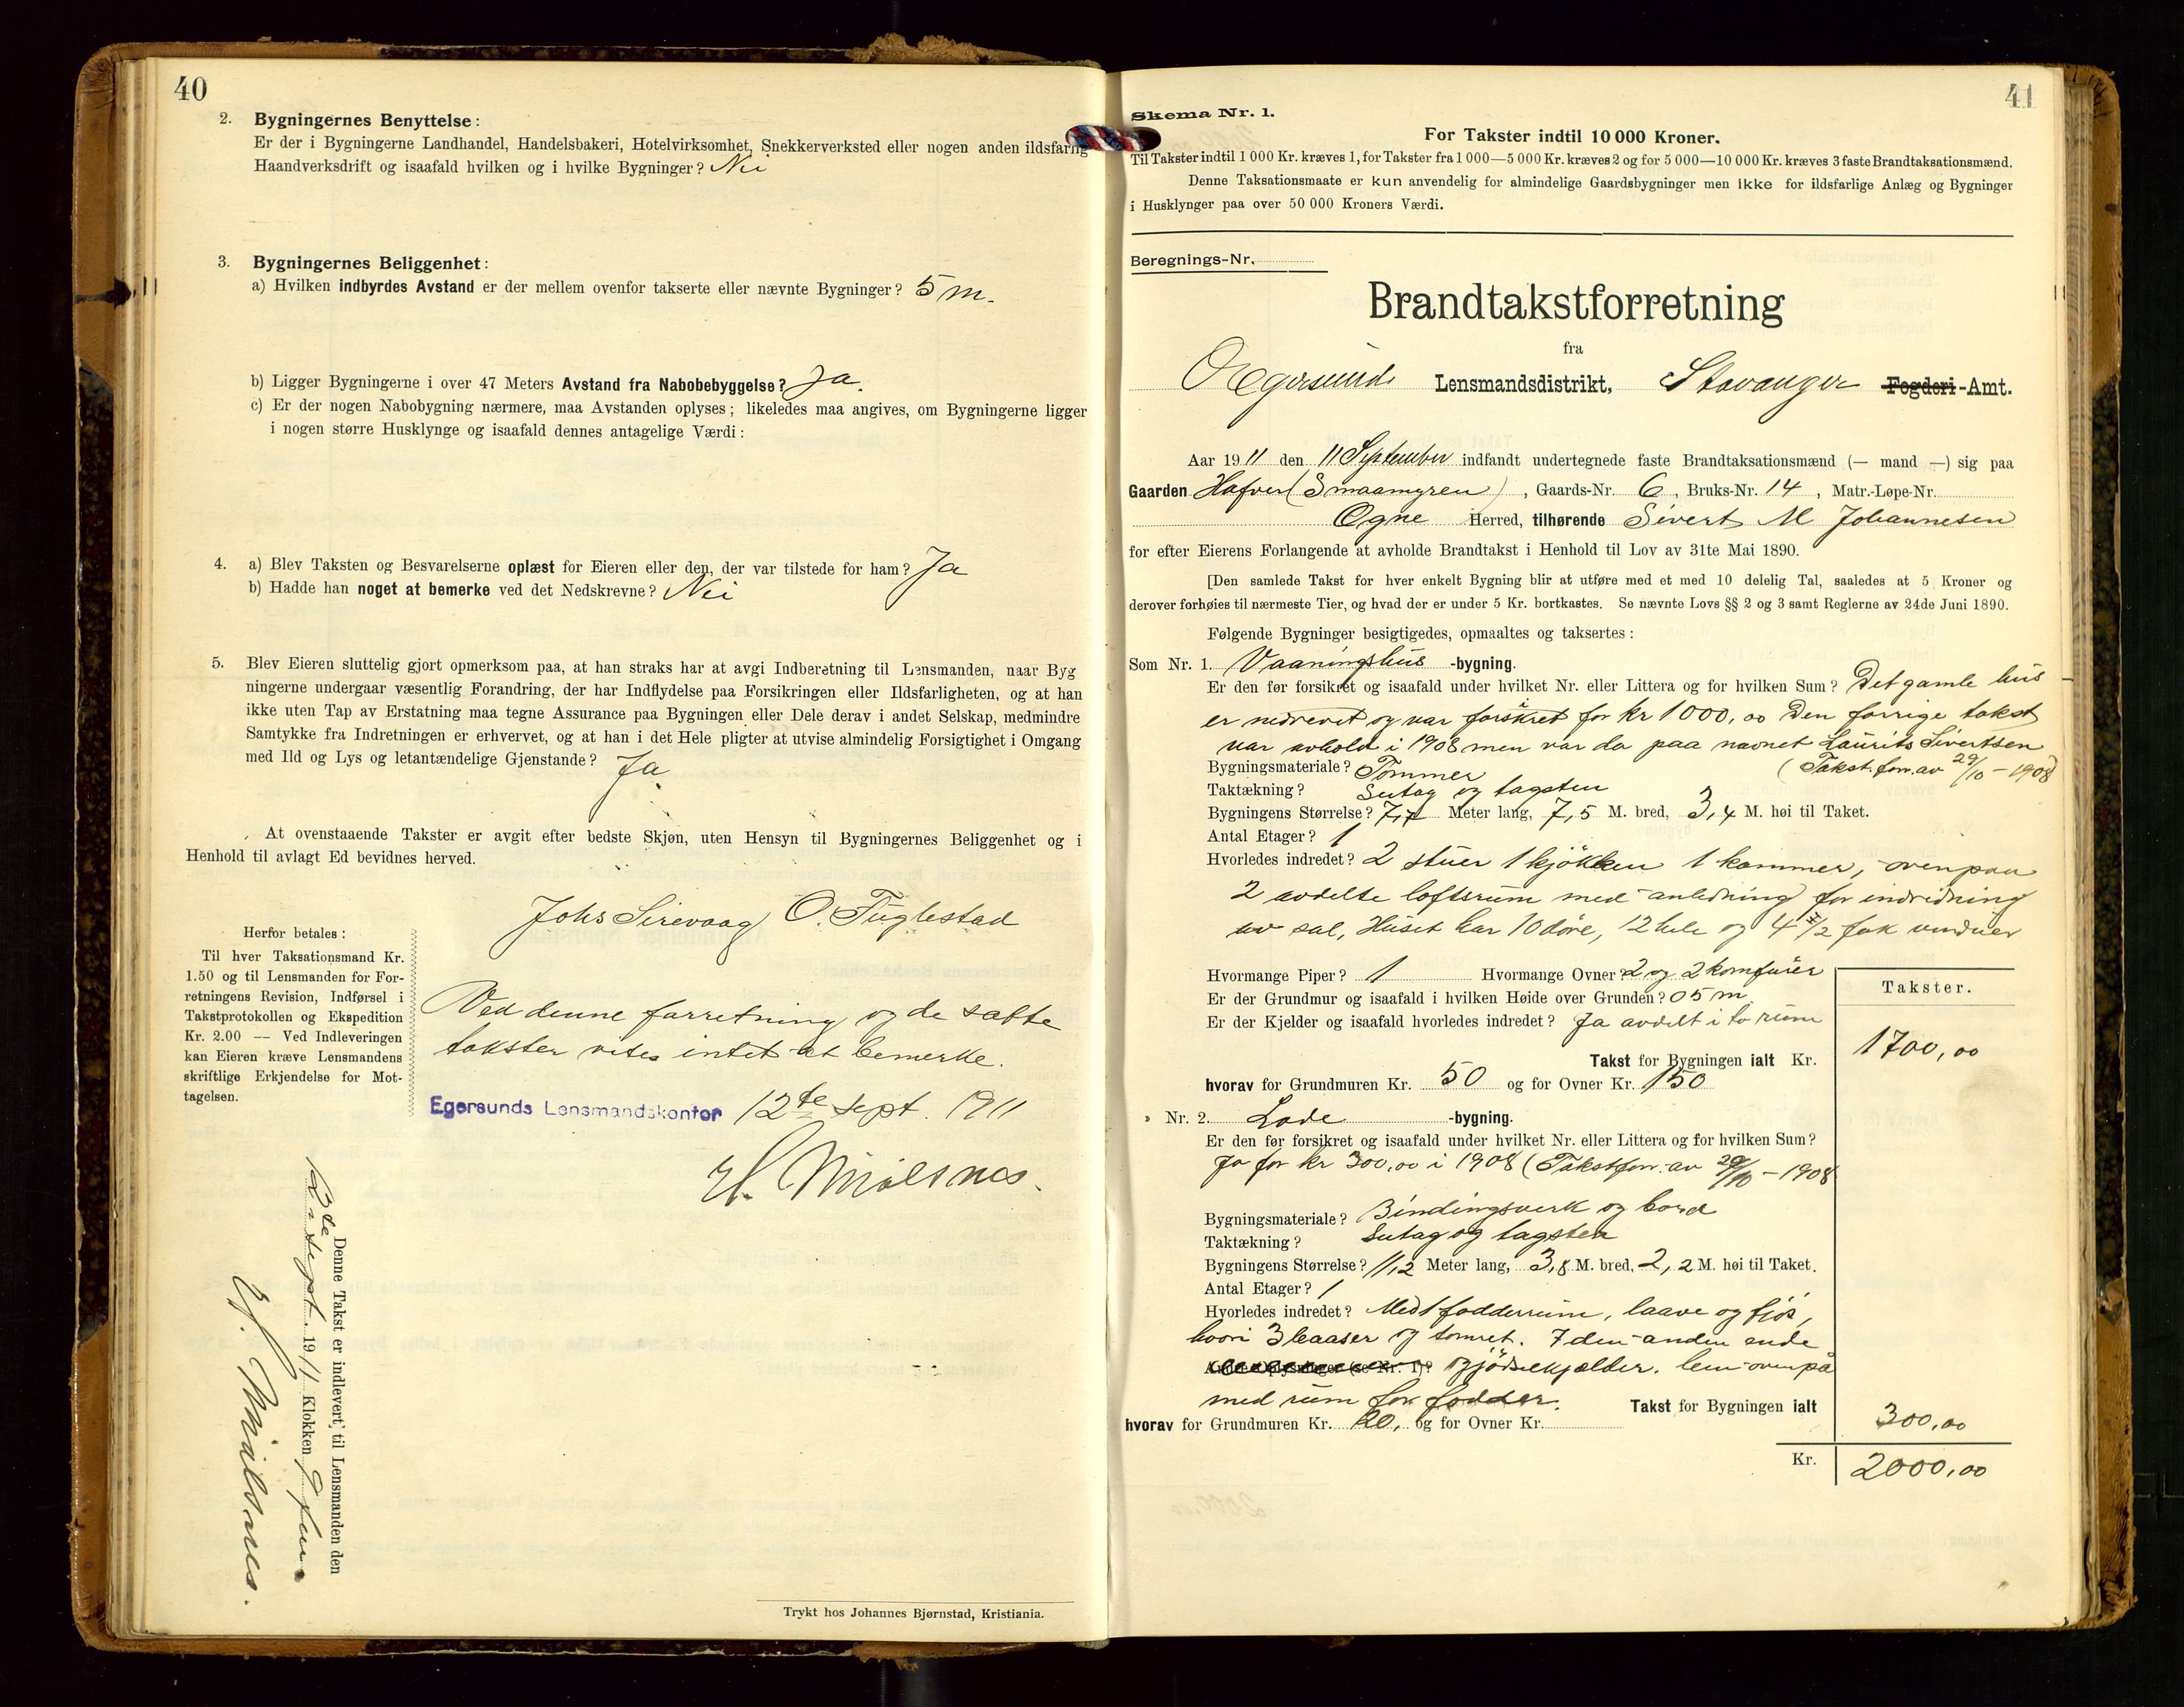 40
2. Bygningernes Benyttelse:
Er der i Bygningerne Landhandel, Handelsbakeri, Hotelvirksomhet, Snekkerverksted eller nogen anden ildsfarlig
Haandverksdrift og isaafald hvilken og i hvilke Bygninger? Nei
3. Bygningernes Beliggenhet:
a) Hvilken indbyrdes Avstand er der mellem ovenfor takserte eller nævnte Bygninger? 5 m.
b) Ligger Bygningerne i over 47 Meters Avstand fra Nabobebyggelse? Ja.
c) Er der nogen Nabobygning nærmere, maa Avstanden oplyses; likeledes maa angives, om Bygningerne ligger
i nogen større Husklynge og isaafald dennes antagelige Værdi:
4. a) Blev Taksten og Besvarelserne oplæst for Eieren eller den, der var tilstede for ham? Ja
b) Hadde han noget at bemerke ved det Nedskrevne? Nei
5. Blev Eieren sluttelig gjort opmerksom paa, at han straks har at avgi Indberetning til Lensmanden, naar Byg
ningerne undergaar væsentlig Forandring, der har Indflydelse paa Forsikringen eller Ildsfarligheten, og at han
ikke uten Tap av Erstatning maa tegne Assurance paa Bygningen eller Dele derav i andet Selskap, medmindre
Samtykke fra Indretningen er erhvervet, og at han i det Hele pligter at utvise almindelig Forsigtighet i Omgang
med Ild og Lys og letantændelige Gjenstande? Ja
At ovenstaaende Takster er avgit efter bedste Skjøn, uten Hensyn til Bygningernes Beliggenhet og i
Henhold til avlagt Ed bevidnes herved.
Johs Sirevaag O. Fuglestad
Herfor betales:
Til hver Taksationsmand Kr.
1.50 og til Lensmanden for For-
retningens Revision, Indførsel i
Takstprotokollen og Ekspedition
Kr. 2.00 — Ved Indleveringen
kan Eieren kræve Lensmandens
skriftlige Erkjendelse for Mot-
tagelsen.
Ved denne forretning og de satte
takster vites intet at bemerke.
Egersunds Lensmandskontor 12te sept. 1911
H. Mjølsnes.
Denne Takst er indlevert til Lensmanden den
12te sept. 1911 Klokken 9 fm
H. Mjølsnes.
Trykt hos Johannes Bjørnstad, Kristiania.
41
Skema Nr. 1.
For Takster indtil 10 000 Kroner.
Til Takster indtil 1 000 Kr. kræves 1, for Takster fra 1 000—5 000 Kr. kræves 2 og for 5 000—10 000 Kr. kræves 3 faste Brandtaksationsmænd.
Denne Taksationsmaate er kun anvendelig for almindelige Gaardsbygninger men ikke for ildsfarlige Anlæg og Bygninger
i Husklynger paa over 50 000 Kroners Værdi.
Beregnings-Nr.
Brandtakstforretning
fra
Egersund Lensmandsdistrikt, Stavanger Fogderi-Amt.
Aar 1911 den 11 September indfandt undertegnede faste Brandtaksationsmænd (— mand —) sig paa
Gaarden Hafver (Smaamyren), Gaards-Nr. 6, Bruks-Nr. 14, Matr.-Løpe-Nr.
Ogne Herred, tilhørende Sivert M Johannesen
for efter Eierens Forlangende at avholde Brandtakst i Henhold til Lov av 31te Mai 1890.
[Den samlede Takst for hver enkelt Bygning blir at utføre med et med 10 delelig Tal, saaledes at 5 Kroner og
derover forhøies til nærmeste Tier, og hvad der er under 5 Kr. bortkastes. Se nævnte Lovs §§ 2 og 3 samt Reglerne av 24de Juni 1890.
Følgende Bygninger besigtigedes, opmaaltes og taksertes:
Som Nr. 1. Vaaningshus -bygning.
Er den før forsikret og isaafald under hvilket Nr. eller Littera og for hvilken Sum? Det gamle hus
er nedrevet og var forsikret for kr 1000,00 Den forrige takst
var avhold i 1908 men var da paa navnet Laurits Sivertsen
(Takst.forr. av 29/10 - 1908)
Bygningsmateriale? Tømmer
Taktækning? Sutag og tagsten
Bygningens Størrelse? 7,7 Meter lang, 7,5 M. bred, 3,4 M. høi til Taket.
Antal Etager? 1
Hvorledes indredet? 2 stuer 1 kjøkken 1 kammer, ovenpaa
2 avdelte loftsrum med anledning for indredning
av sal, Huset har 10 døre, 12 hele og 4 1/2 fak vinduer
Hvormange Piper? 1 Hvormange Ovner? 2 og 2 komfurer
Er der Grundmur og isaafald i hvilken Høide over Grunden? 05 m.
Er der Kjelder og isaafald hvorledes indredet? Ja avdelt i to rum
Takster.
Takst for Bygningen ialt Kr. 1700,00
hvorav for Grundmuren Kr. 50 og for Ovner Kr. 150
» Nr. 2. Lade -bygning.
Er den før forsikret og isaafald under hvilket Nr. eller Littera og for hvilken Sum?
Ja for kr 300,00 i 1908 (Takstforr. av 29/10 - 1908
Bygningsmateriale? Bindingsverk og bord
Taktækning? Sutag og tagsten
Bygningens Størrelse? 11,2 Meter lang, 3,8 M. bred, 2,2 M. høi til Taket.
Antal Etager? 1
Hvorledes indredet? Med 1 fodderrum, laave og fjøs,
hvori 3 baaser og tomret. I den anden ende
gjødselkjælder. lem ovenpå
med rum for fodder. Takst for Bygningen ialt 300,00
hvorav for Grundmuren Kr. 20, og for Ovner Kr.
Kr. 2000,00